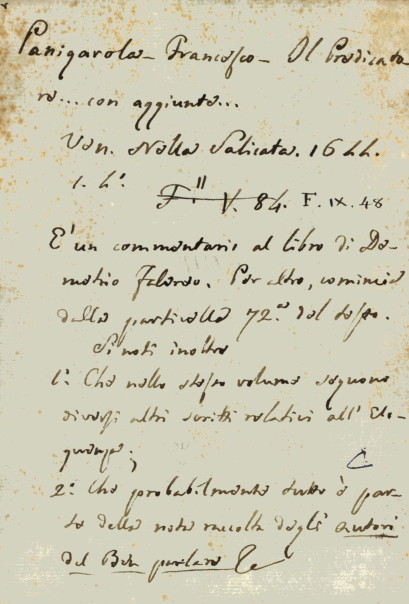 Panigarola - Francesco - Il Predicato-
re... con aggiunta...
Ven. Nella Salicata. 1644.
1. 4º.
F. II V. 84. F. IX. 48
E' un commentario al libro di De-
metrio Falereo. Per altro, comincia
dalla particella 72.ª del testo.
Si noti inoltre
1º. Che nello stesso volume seguono
diversi altri scritti relativi all' Elo-
quenza;
2º. Che probabilmente tutto è par-
te della nota raccolta degli autori
del Ben parlare